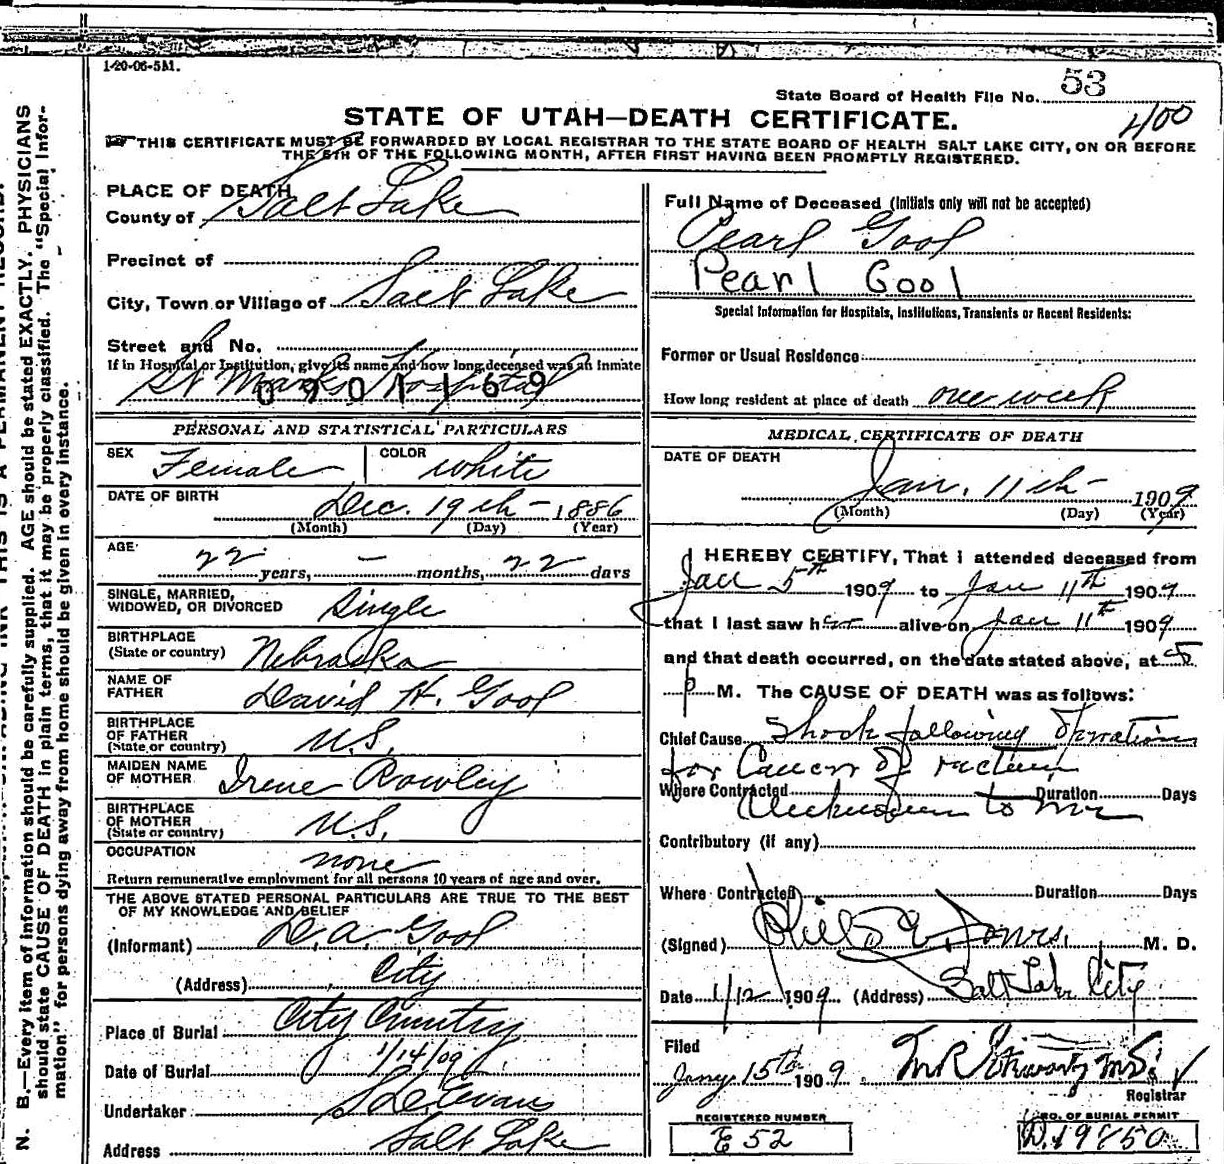 1-20-06-5M.
State Board of Health File No. 53
400
STATE OF UTAH—DEATH CERTIFICATE.
THIS CERTIFICATE MUST BE FORWARDED BY LOCAL REGISTRAR TO THE STATE BOARD OF HEALTH SALT LAKE CITY, ON OR BEFORE
THE 5TH OF THE FOLLOWING MONTH, AFTER FIRST HAVING BEEN PROMPTLY REGISTERED.
PLACE OF DEATH
County of Salt Lake
Precinct of
City, Town or Village of Salt Lake
Street and No.
If in Hospital or Institution, give its name and how long deceased was an inmate
St Marks Hospital
PERSONAL AND STATISTICAL PARTICULARS
SEX Female COLOR White
DATE OF BIRTH Dec. 19th - 1886
(Month) (Day) (Year)
AGE 22 years, — months, 22 days
SINGLE, MARRIED,
WIDOWED, OR DIVORCED Single
BIRTHPLACE
(State or country) Nebraska
NAME OF
FATHER David H. Gool
BIRTHPLACE
OF FATHER
(State or country) U.S.
MAIDEN NAME
OF MOTHER Irene Rowley
BIRTHPLACE
OF MOTHER
(State or country) U.S.
OCCUPATION none
Return remunerative employment for all persons 10 years of age and over.
THE ABOVE STATED PERSONAL PARTICULARS ARE TRUE TO THE BEST
OF MY KNOWLEDGE AND BELIEF
(Informant) D. A. Gool
(Address) City
Place of Burial City Cemetery
Date of Burial 1/14/09
Undertaker S D Evans
Address Salt Lake
Full Name of Deceased (Initials only will not be accepted)
Pearl Gool
Pearl Gool
Special Information for Hospitals, Institutions, Transients or Recent Residents:
Former or Usual Residence
How long resident at place of death one week
MEDICAL CERTIFICATE OF DEATH
DATE OF DEATH
Jan. 11th - 1909
(Month) (Day) (Year)
I HEREBY CERTIFY, That I attended deceased from
Jan 5th 1909 to Jan 11th 1909
that I last saw her alive on Jan 11th 1909
and that death occurred, on the date stated above, at 5
p M. The CAUSE OF DEATH was as follows:
Chief Cause Shock following Operation
for Cancer of rectum
Where Contracted Duration Days
Unknown to me
Contributory (if any)
Where Contracted Duration Days
(Signed) Philo E Jones, M. D.
Date 1/12 1909 (Address) Salt Lake City
Filed
Jany 15th 1909 M R Stewart MD.
Registrar
REGISTERED NUMBER
E 52
NO. OF BURIAL PERMIT
D. 19850
N. B.—Every item of information should be carefully supplied. AGE should be stated EXACTLY. PHYSICIANS
should state CAUSE OF DEATH in plain terms, that it may be properly classified. The "Special Infor-
mation" for persons dying away from home should be given in every instance.